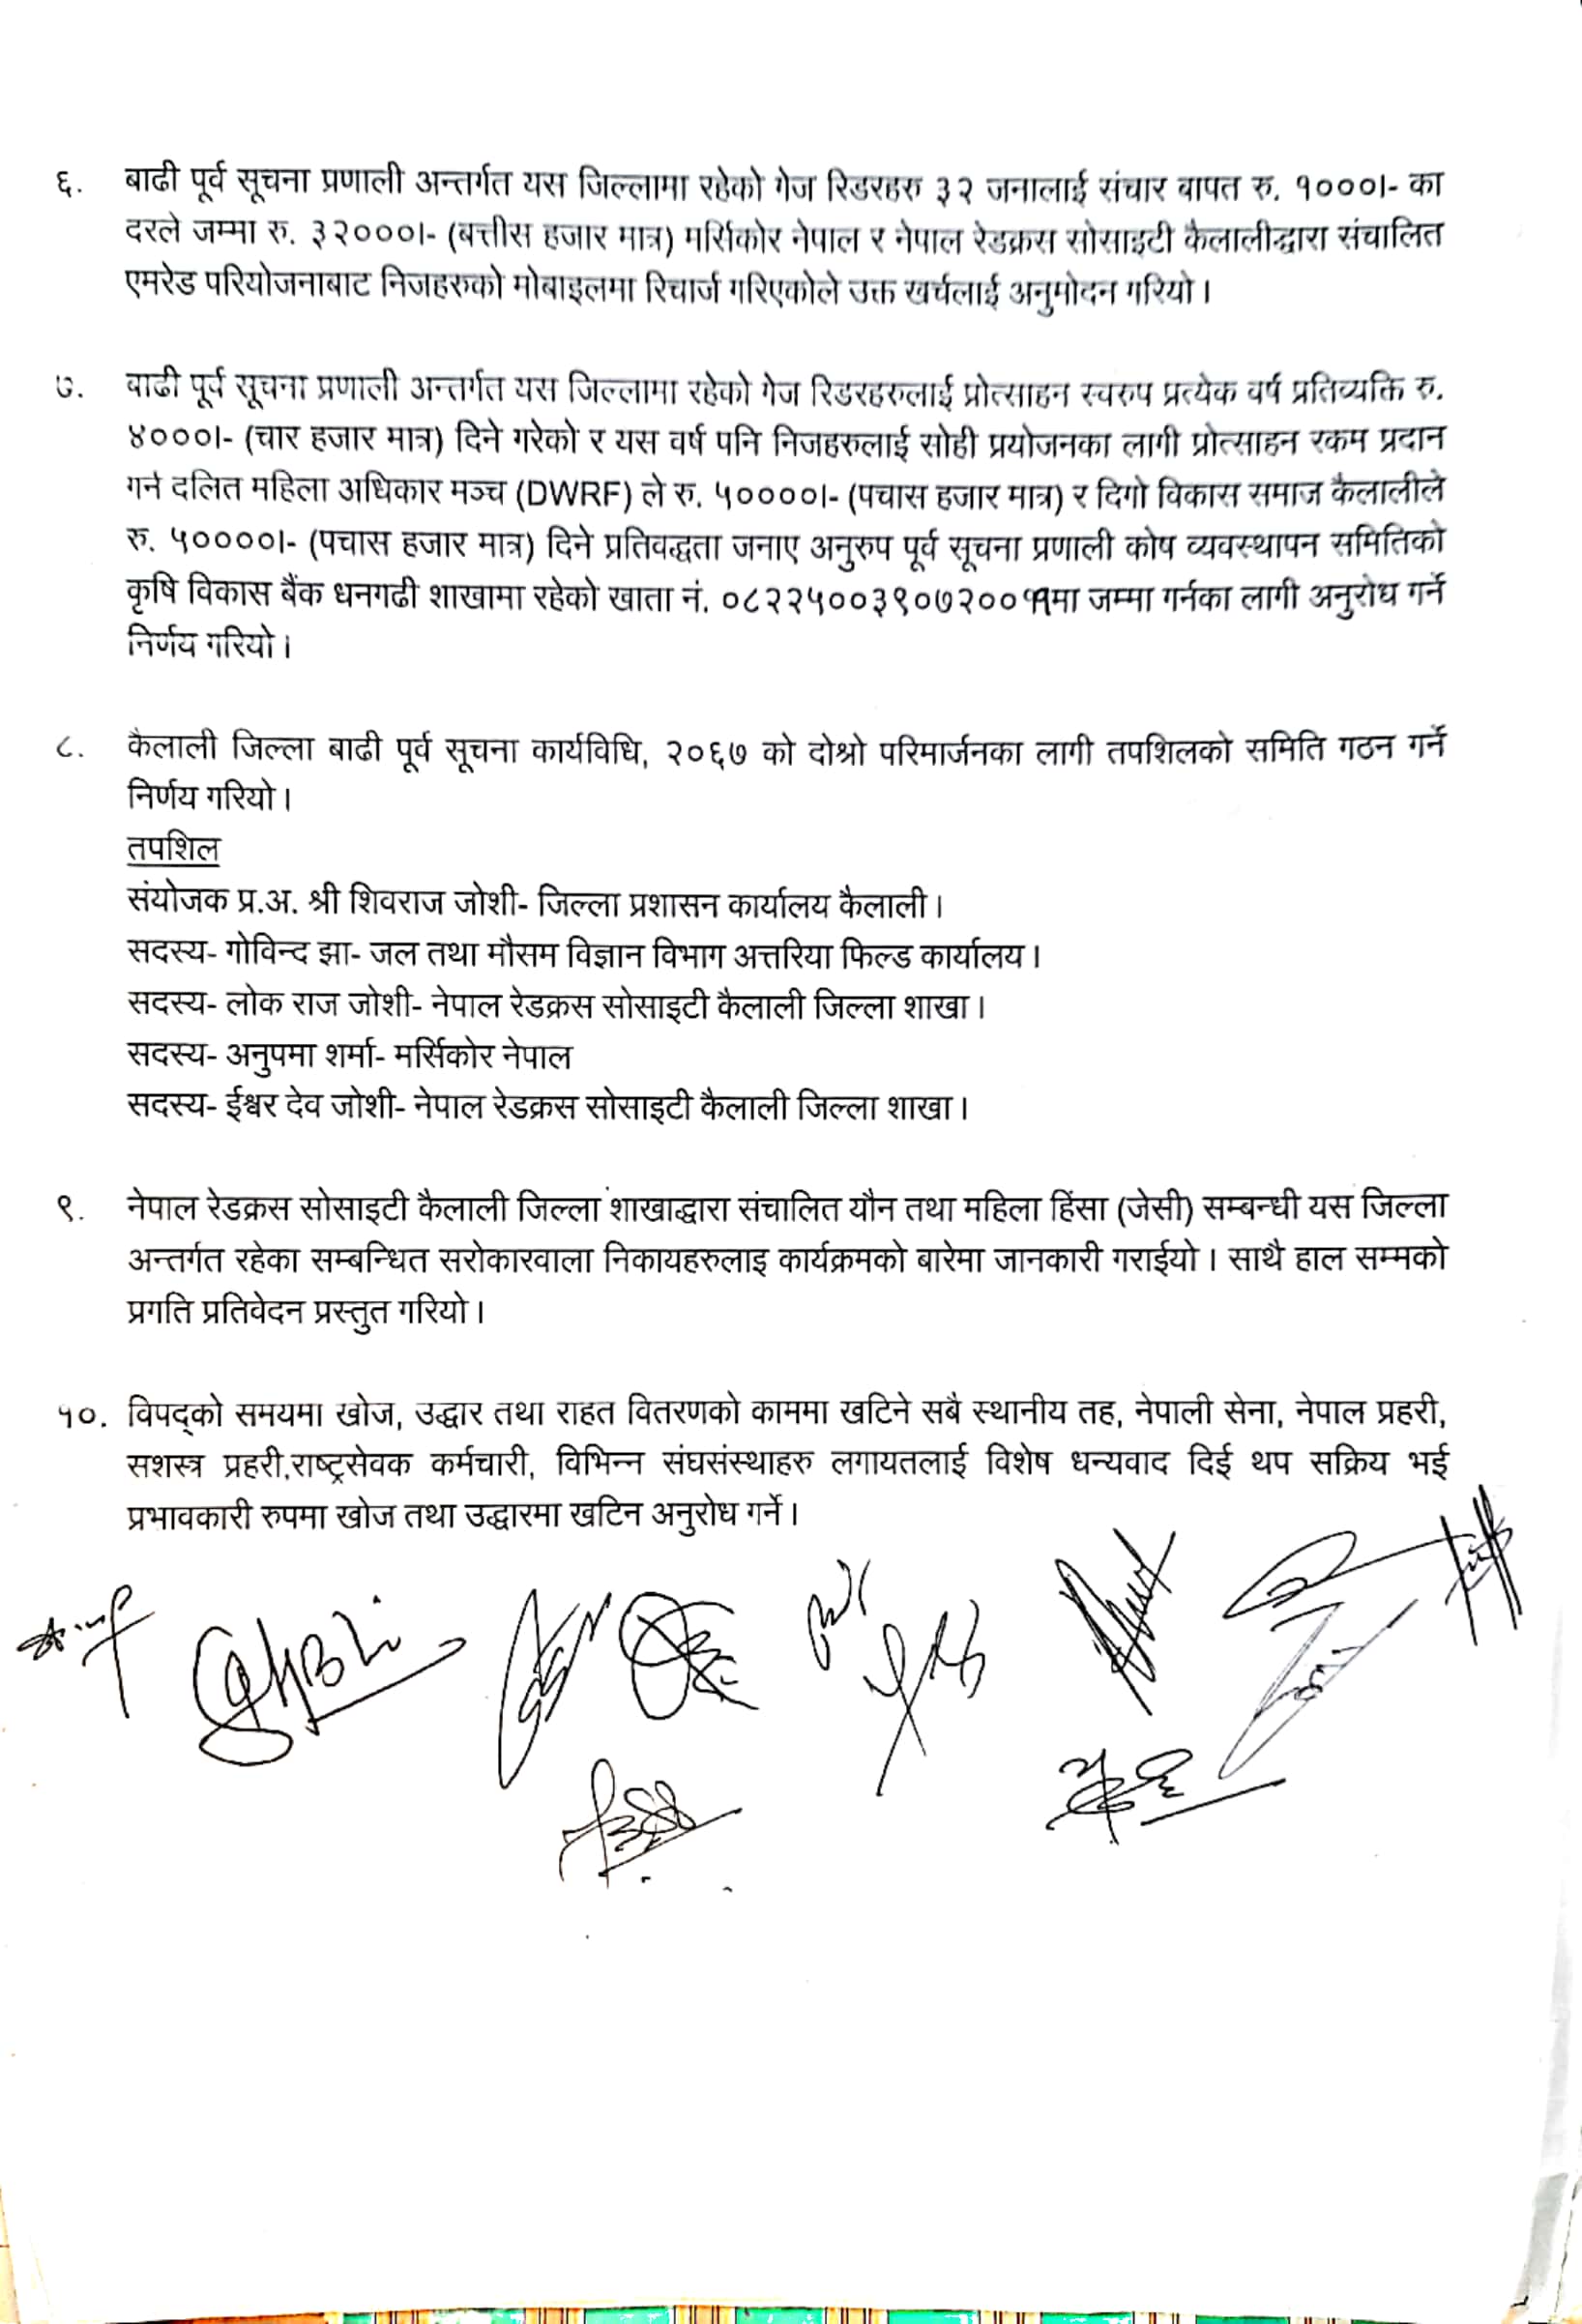 ६. बाढी पूर्व सूचना प्रणाली अन्तर्गत यस जिल्लामा रहेको गेज रिडरहरु ३२ जनालाई संचार बापत रु. १०००।- का
दरले जम्मा रु. ३२०००।- (बत्तीस हजार मात्र) मर्सिकोर नेपाल र नेपाल रेडक्रस सोसाइटी कैलालीद्धारा संचालित
एमरेड परियोजनाबाट निजहरुको मोबाइलमा रिचार्ज गरिएकोले उक्त खर्चलाई अनुमोदन गरियो ।
७. बाढी पूर्व सूचना प्रणाली अन्तर्गत यस जिल्लामा रहेको गेज रिडरहरुलाई प्रोत्साहन स्वरुप प्रत्येक वर्ष प्रतिव्यक्ति रु.
४०००।- (चार हजार मात्र) दिने गरेको र यस वर्ष पनि निजहरुलाई सोही प्रयोजनका लागी प्रोत्साहन रकम प्रदान
गर्न दलित महिला अधिकार मञ्च (DWRF) ले रु. ५००००।- (पचास हजार मात्र) र दिगो विकास समाज कैलालीले
रु. ५००००।- (पचास हजार मात्र) दिने प्रतिवद्धता जनाए अनुरुप पूर्व सूचना प्रणाली कोष व्यवस्थापन समितिको
कृषि विकास बैंक धनगढी शाखामा रहेको खाता नं. ०८२२५००३९०७२००११मा जम्मा गर्नका लागी अनुरोध गर्ने
निर्णय गरियो ।
८. कैलाली जिल्ला बाढी पूर्व सूचना कार्यविधि, २०६७ को दोश्रो परिमार्जनका लागी तपशिलको समिति गठन गर्ने
निर्णय गरियो ।
तपशिल
संयोजक प्र.अ. श्री शिवराज जोशी- जिल्ला प्रशासन कार्यालय कैलाली ।
सदस्य- गोविन्द झा- जल तथा मौसम विज्ञान विभाग अत्तरिया फिल्ड कार्यालय ।
सदस्य- लोक राज जोशी- नेपाल रेडक्रस सोसाइटी कैलाली जिल्ला शाखा ।
सदस्य- अनुपमा शर्मा- मर्सिकोर नेपाल
सदस्य- ईश्वर देव जोशी- नेपाल रेडक्रस सोसाइटी कैलाली जिल्ला शाखा ।
९. नेपाल रेडक्रस सोसाइटी कैलाली जिल्ला शाखाद्धारा संचालित यौन तथा महिला हिंसा (जेसी) सम्बन्धी यस जिल्ला
अन्तर्गत रहेका सम्बन्धित सरोकारवाला निकायहरुलाइ कार्यक्रमको बारेमा जानकारी गराईयो । साथै हाल सम्मको
प्रगति प्रतिवेदन प्रस्तुत गरियो ।
१०. विपद्को समयमा खोज, उद्धार तथा राहत वितरणको काममा खटिने सबै स्थानीय तह, नेपाली सेना, नेपाल प्रहरी,
सशस्त्र प्रहरी,राष्ट्रसेवक कर्मचारी, विभिन्न संघसंस्थाहरु लगायतलाई विशेष धन्यवाद दिई थप सक्रिय भई
प्रभावकारी रुपमा खोज तथा उद्धारमा खटिन अनुरोध गर्ने ।